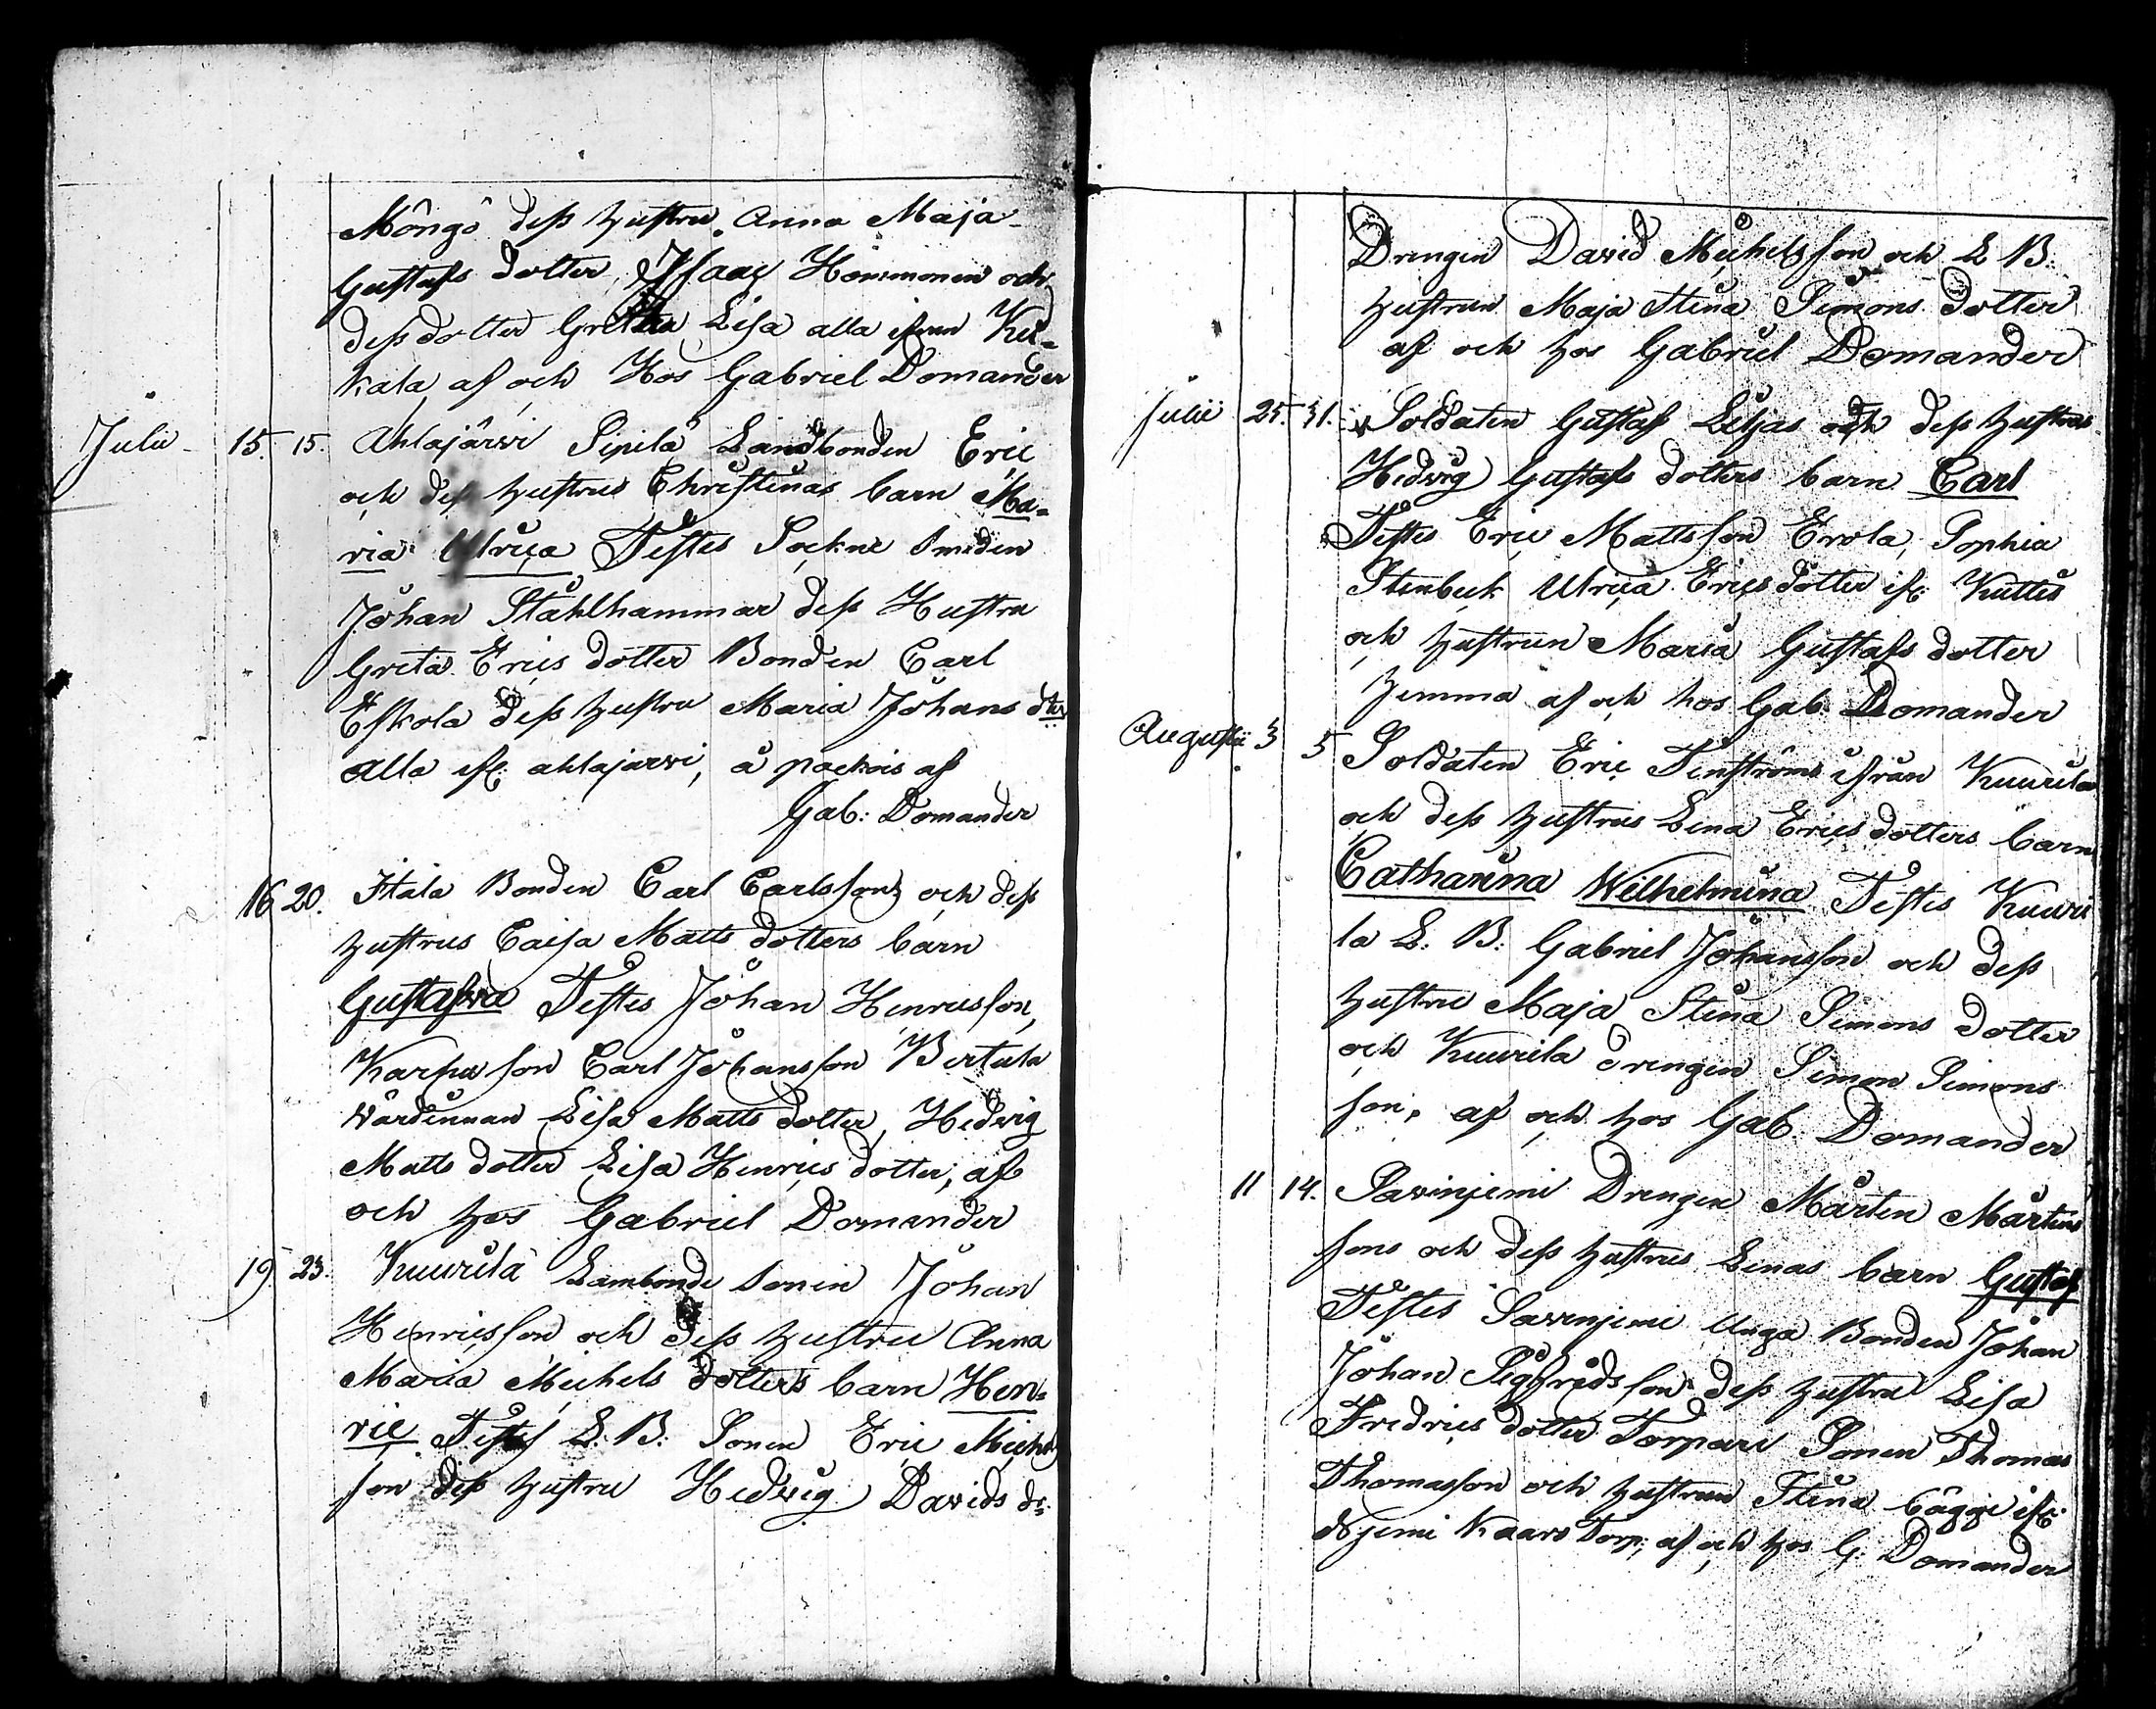 Môngö dess hustru Anna Maja
Gustafs dotter, Isaac Hommonen och
dess dotter Greta Lisa alla ifrån Ku-
kala af och Hos Gabriel Domander
Julii 15. 15. Ahlajärwi Sipilä Landbonden Eric
och dess hustrus Christinas barn Ma-
ria Ulrica Testes Sockne Smeden
Johan Stålhammar dess Hustru
Greta Erics dotter Bonden Carl
Eskola dess hustru Maria Johans dter
alla ifr: ahlajarwi, å pockois af
Gab: Domander
16 20. Itala Bonden Carl Carlssons och dess
hustrus Caisa Matts dotters barn
Gustafwa Testes Johan Henricsson,
Karpu son Carl Johansson Bertula
Wärdinnan Lisa Matts dotter, Hedvig
Matts dotter Lisa Henrics dotter, af
och hos Gabriel Domander
19. 23. Kuurila Lambonde sonen Johan
Henricsson och dess hustru Anna
Maria Michels dotters barn Hen-
ric. Testes L: B: Sonen Eric Michels
son dess hustru Hedwig Davids dr:
Drengen David Michelsson och L B:
hustrun Maja Stina Simons dotter
af och hos Gabriel Domander
Julii 25. 31. Soldaten Gustaf Liljas och dess hustrus
Hedvig Gustafs dotters barn Carl
Testes Eric Mattsson Erola, Sophia
Stenbeck Ulrica Erics dotter ifr: Kuttis
och hustrun Maria Gustafs dotter
hemma af och hos Gab: Domander
Augusti 3 5 Soldaten Eric Tenströms ifrån Kuurila
och dess hustrus Lena Erics dotters barn
Catharina Wilhelmina Testes Kuuri
la L: B: Gabriel Johansson och dess
hustru Maja Stina Simons dotter
och Kuurila drengen Simon Simons
son, af och hos Gab. Domander
11 14. Savinjemi Drengen Mårten Mårtens
sons och dess hustrus Lenas barn Gustaf
Testes Savinjemi Unga Bonden Johan
Johan Sigfridsson dess hustru Lisa
Fredrics dotter Torpare Sonen Thomas
Thomasson och hustrun Stina bägge ifr:
Njemi Kaars Torp, af och hos G: Domander